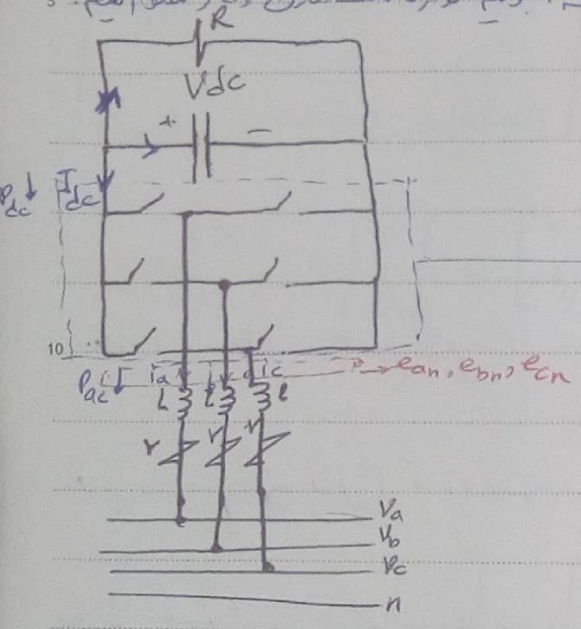 R
Vdc
+ −
Pdc Idc
10
Pac ia ib ic → ean, ebn, ecn
L L L
r r r
Va
Vb
Vc
n